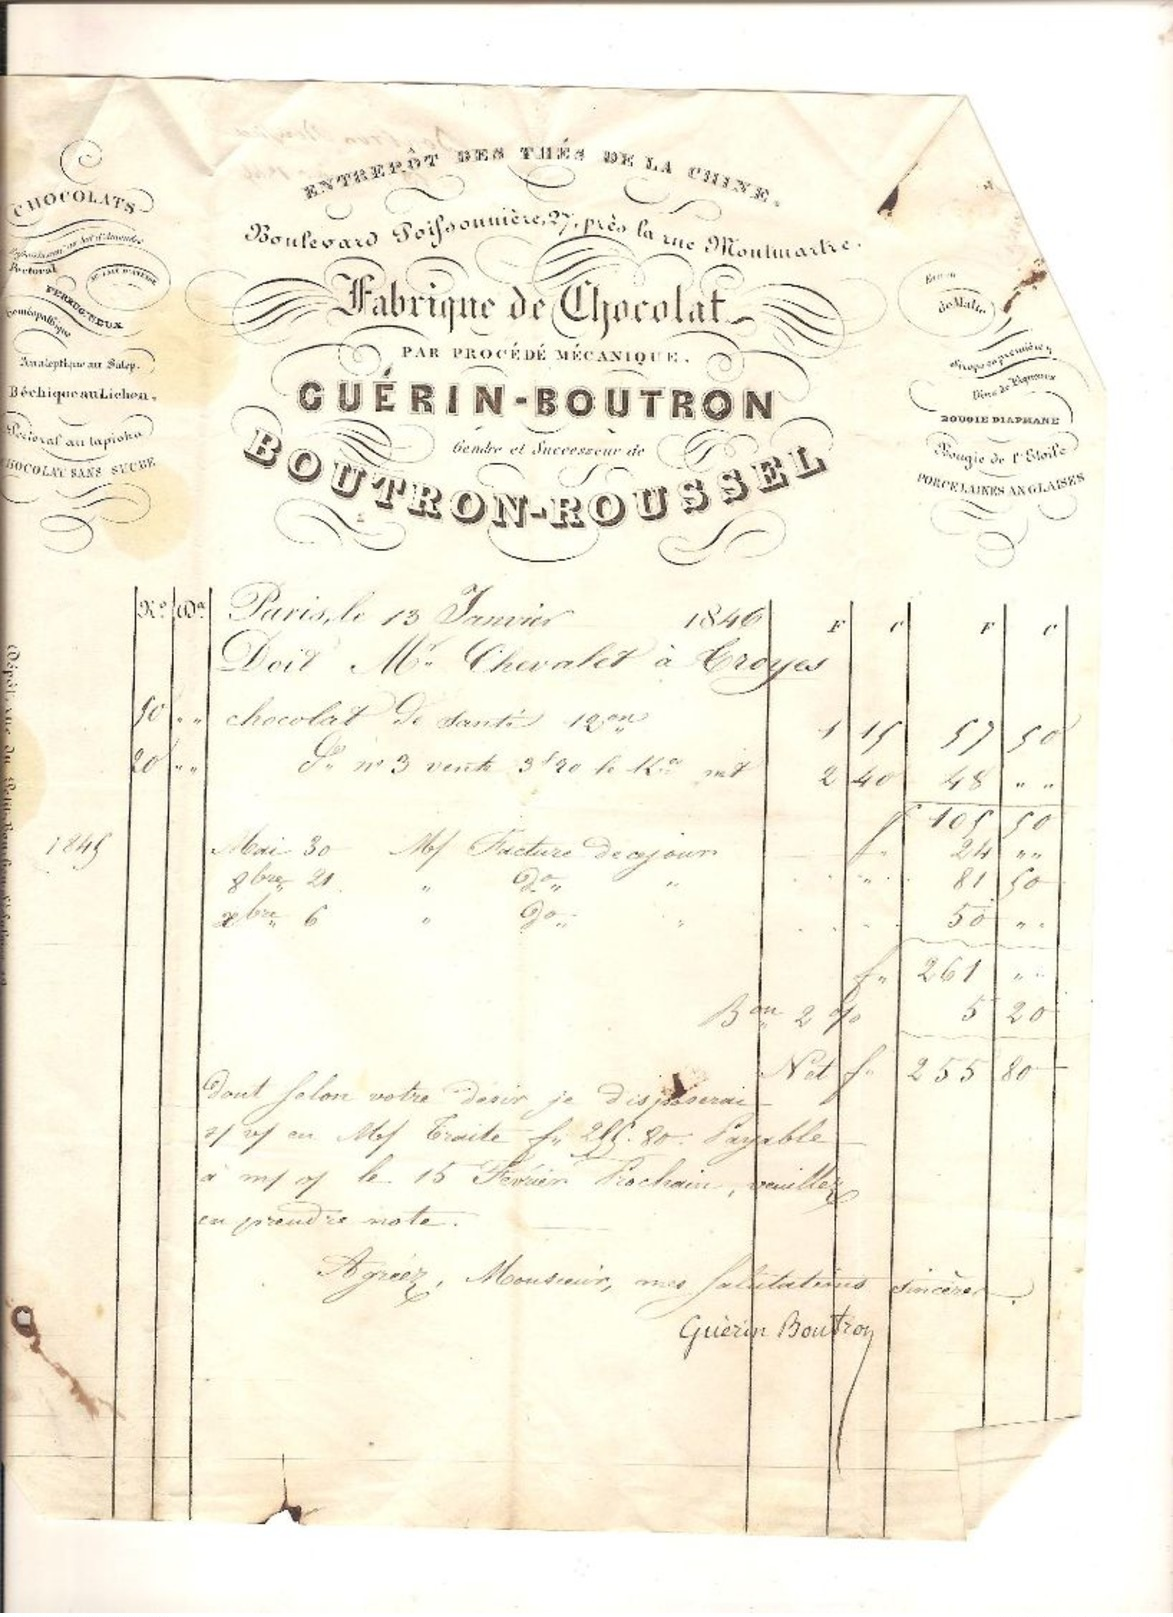 ENTREPÔT DES THÉS DE LA CHINE.
Boulevard Poissonnière, 27, près la rue Montmartre.
Fabrique de Chocolat
PAR PROCÉDÉ MÉCANIQUE.
GUÉRIN-BOUTRON
Gendre et Successeur de
BOUTRON-ROUSSEL
CHOCOLATS
Pectoral
AU LAIT D'AMANDE
FERRUGINEUX
Homéopathique
Analeptique au Salep.
Béchique au Lichen.
Pectoral au tapioka
CHOCOLAT SANS SUCRE
de Malte
Sirops en première q.
Vins de Vignoux
BOUGIE DIAPHANE
Bougie de l'Étoile
PORCELAINES ANGLAISES
No Do Paris, le 13 Janvier 1846 F C F C
Doit Mr Chevalet à Troyes
50 " " chocolat de santé 12on 1 15 57 50
20 " " Do no 3 vente 3f 20 le Ko 2 40 48 " "
f 105 50
1845 Mai 30 M/ Facture de ce jour f" 24 " "
8bre 21 " Do " " 81 50
xbre 6 " Do " 50 " "
f" 261 " "
Bon 2 % 5 20
Net f" 255 80
Dont selon votre désir je disposerai
s/ v/ en M/ Traite f" 255.80. Payable
à m/ o/ le 15 Février Prochain, veuillez
en prendre note.
Agréez, Monsieur, mes salutations sincères.
Guérin Boutron